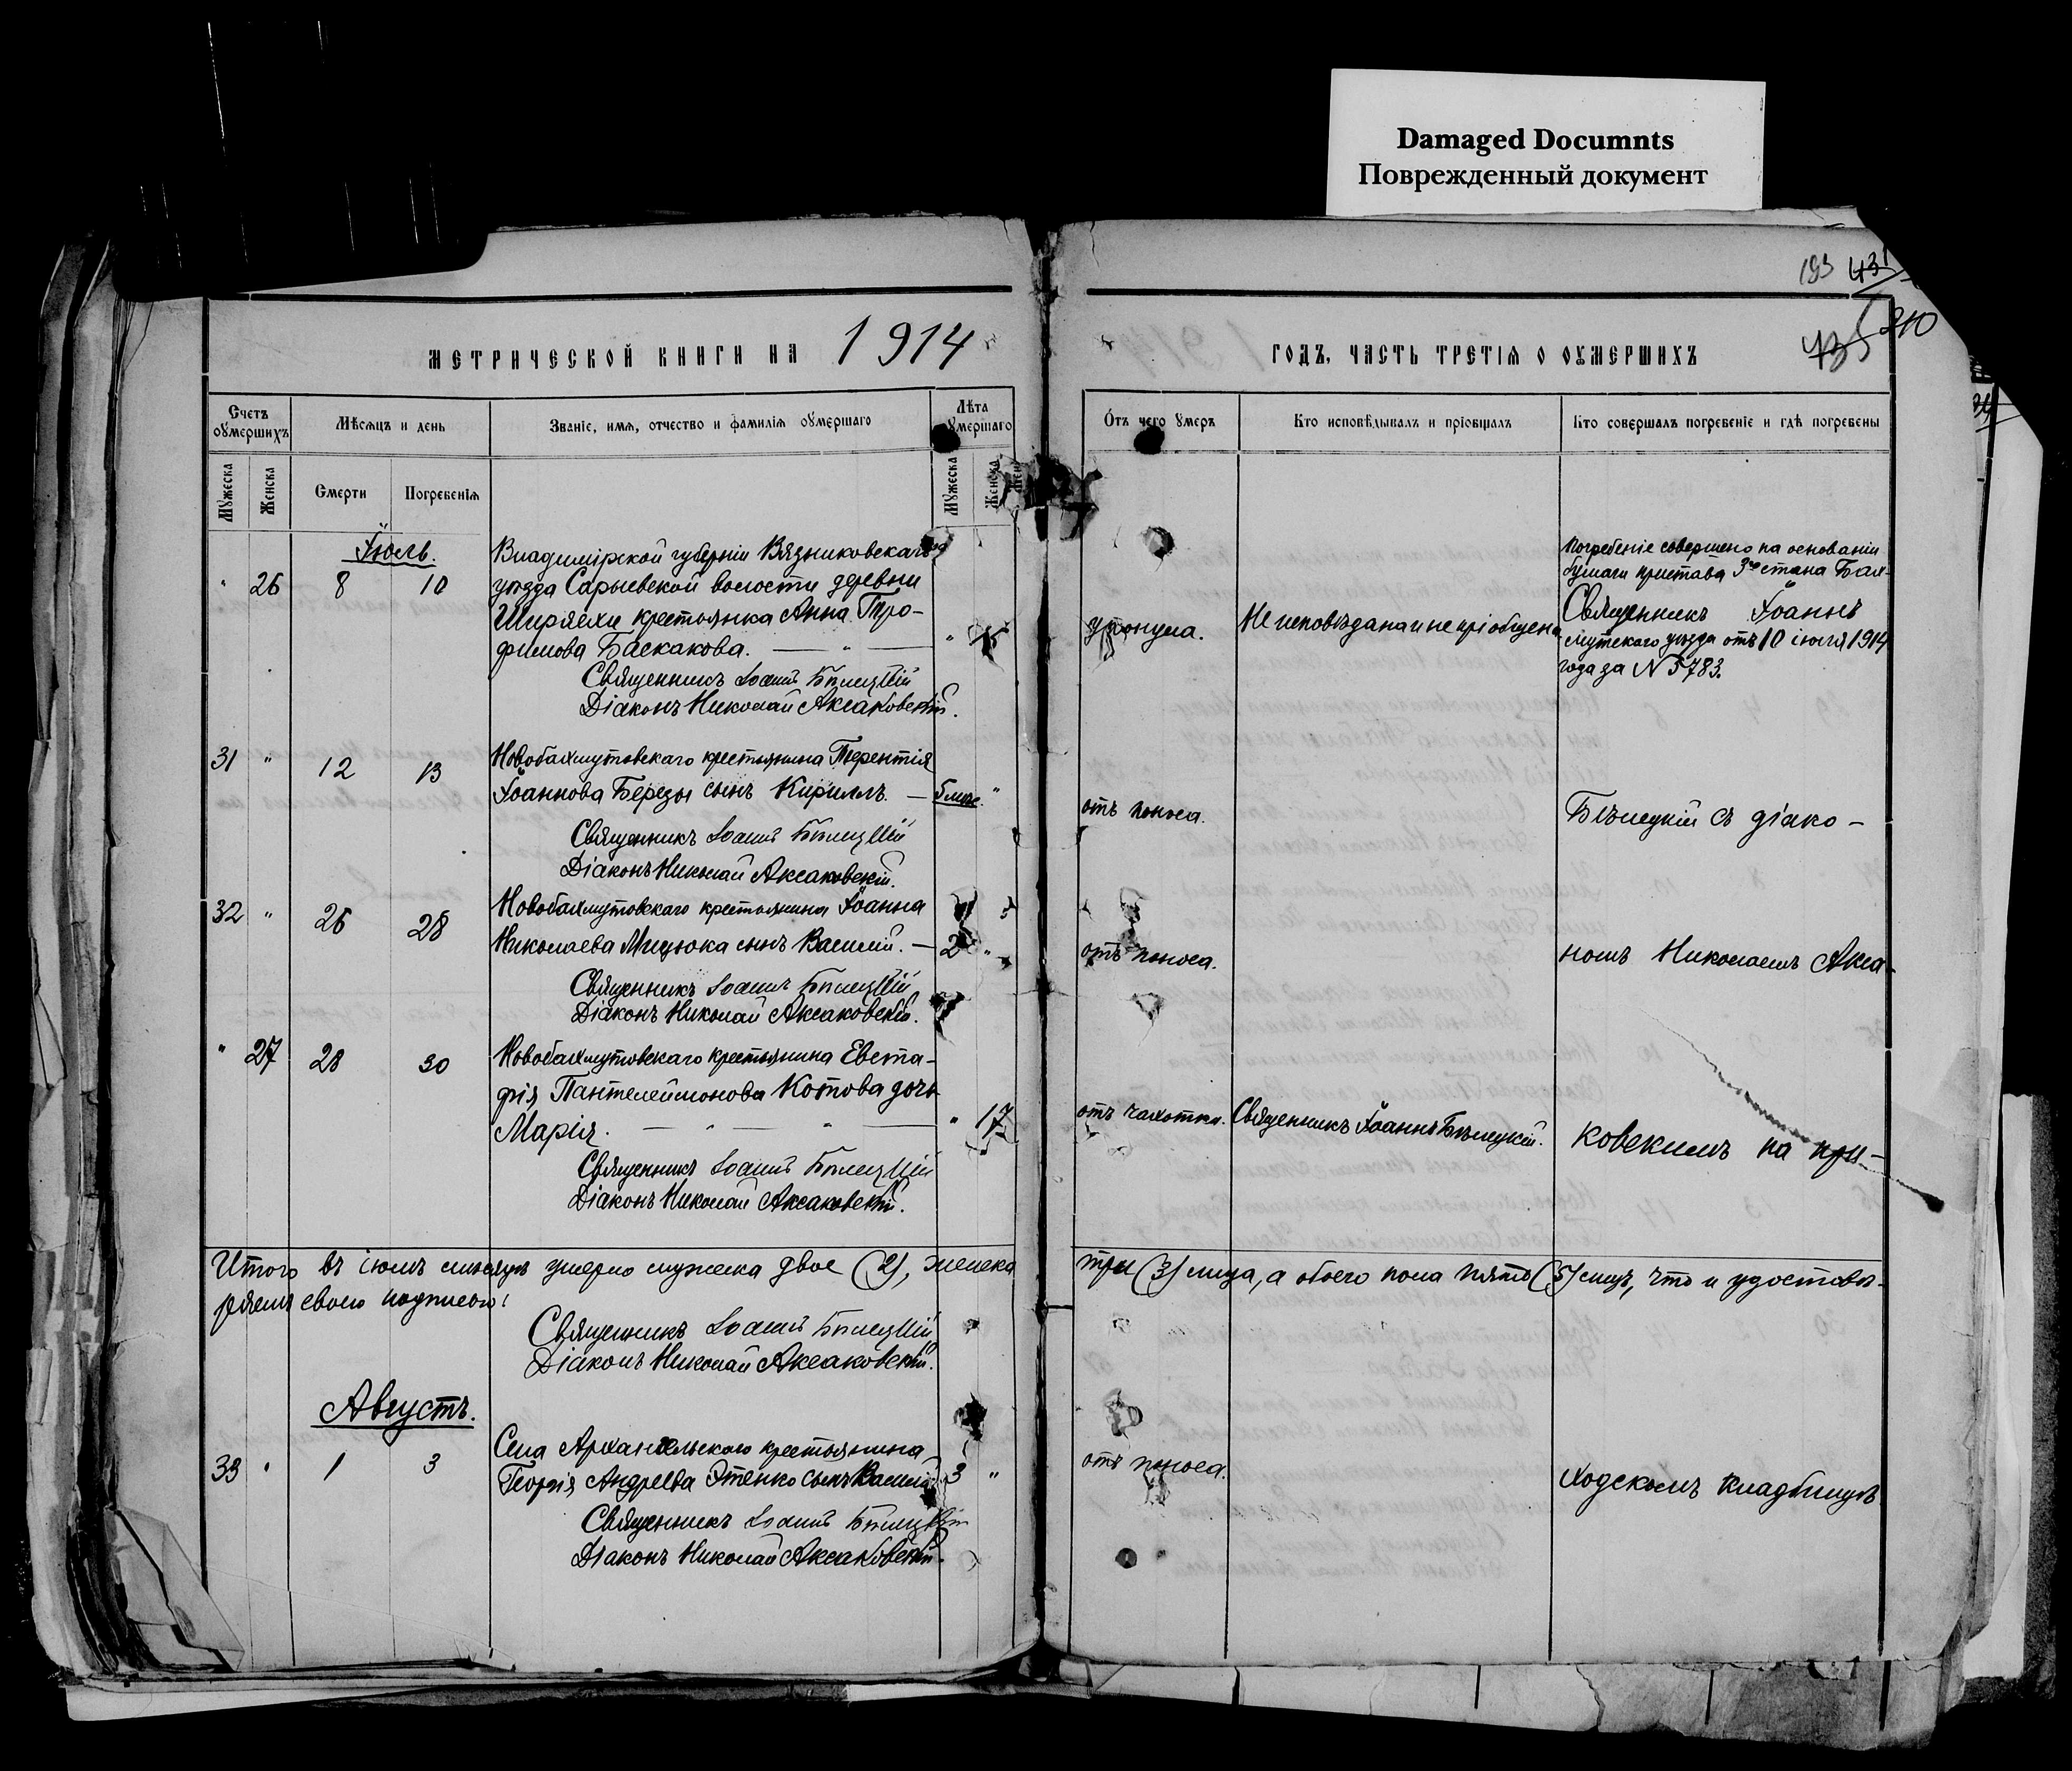 Damaged Documnts
Поврежденный документ
193 431
210
435
МЕТРИЧЕСКОЙ КНИГИ НА 1914
ГОДЪ, ЧАСТЬ ТРЕТІЯ О ОУМЕРШИХЪ
Счетъ оумершихъ
Мѣсяцъ и день
Званіе, имя, отчество и фамилія оумершаго
Лѣта оумершаго
Мужеска
Женска
Смерти
Погребенія
Мужеска
Женска
Отъ чего умеръ
Кто исповѣдывалъ и пріобщалъ
Кто совершалъ погребеніе и гдѣ погребены
Іюль.
" 26 8 10
Владимірской губерніи Вязниковскаго
уѣзда Сарыевской волости деревни
Ширяехи крестьянка Анна Тро-
фимова Баскакова. — " —
Священникъ Іоаннъ Бѣлецкій
Діаконъ Николай Аксаковскій.
утонула.
Не исповѣдана и не пріобщена
Погребеніе совершено на основаніи
бумаги пристава 3го стана Бах-
Священникъ Іоаннъ
мутскаго уѣзда отъ 10 іюля 1914
года за N 5783.
31 " 12 13
Новобахмутовскаго крестьянина Терентія
Іоаннова Березы сынъ Кириллъ. — 5 мѣс. "
Священникъ Іоаннъ Бѣлецкій
Діаконъ Николай Аксаковскій.
отъ поноса.
Бѣлецкій съ діако-
32 " 26 28
Новобахмутовскаго крестьянина Іоанна
Николаева Мицюка сынъ Василій. — 2 "
Священникъ Іоаннъ Бѣлецкій
Діаконъ Николай Аксаковскій.
отъ поноса.
номъ Николаемъ Акса-
" 27 28 30
Новобахмутовскаго крестьянина Евста-
фія Пантелеймонова Котова дочь
Марія. — " — " — " 17
Священникъ Іоаннъ Бѣлецкій
Діаконъ Николай Аксаковскій.
отъ чахотки.
Священникъ Іоаннъ Бѣлецкій.
ковскимъ на при-
Итого въ іюлѣ мѣсяцѣ умерло мужска двое (2), женска
три (3) лица, а обоего пола пять (5) лицъ, что и удостовѣ-
ряемъ своею подписью:
Священникъ Іоаннъ Бѣлецкій
Діаконъ Николай Аксаковскій.
Августъ.
33 " 1 3
Села Архангельскаго крестьянина
Георгія Андреева Этенко сынъ Василій. 3 "
Священникъ Іоаннъ Бѣлецкій
Діаконъ Николай Аксаковскій.
отъ поноса.
ходскомъ кладбищѣ